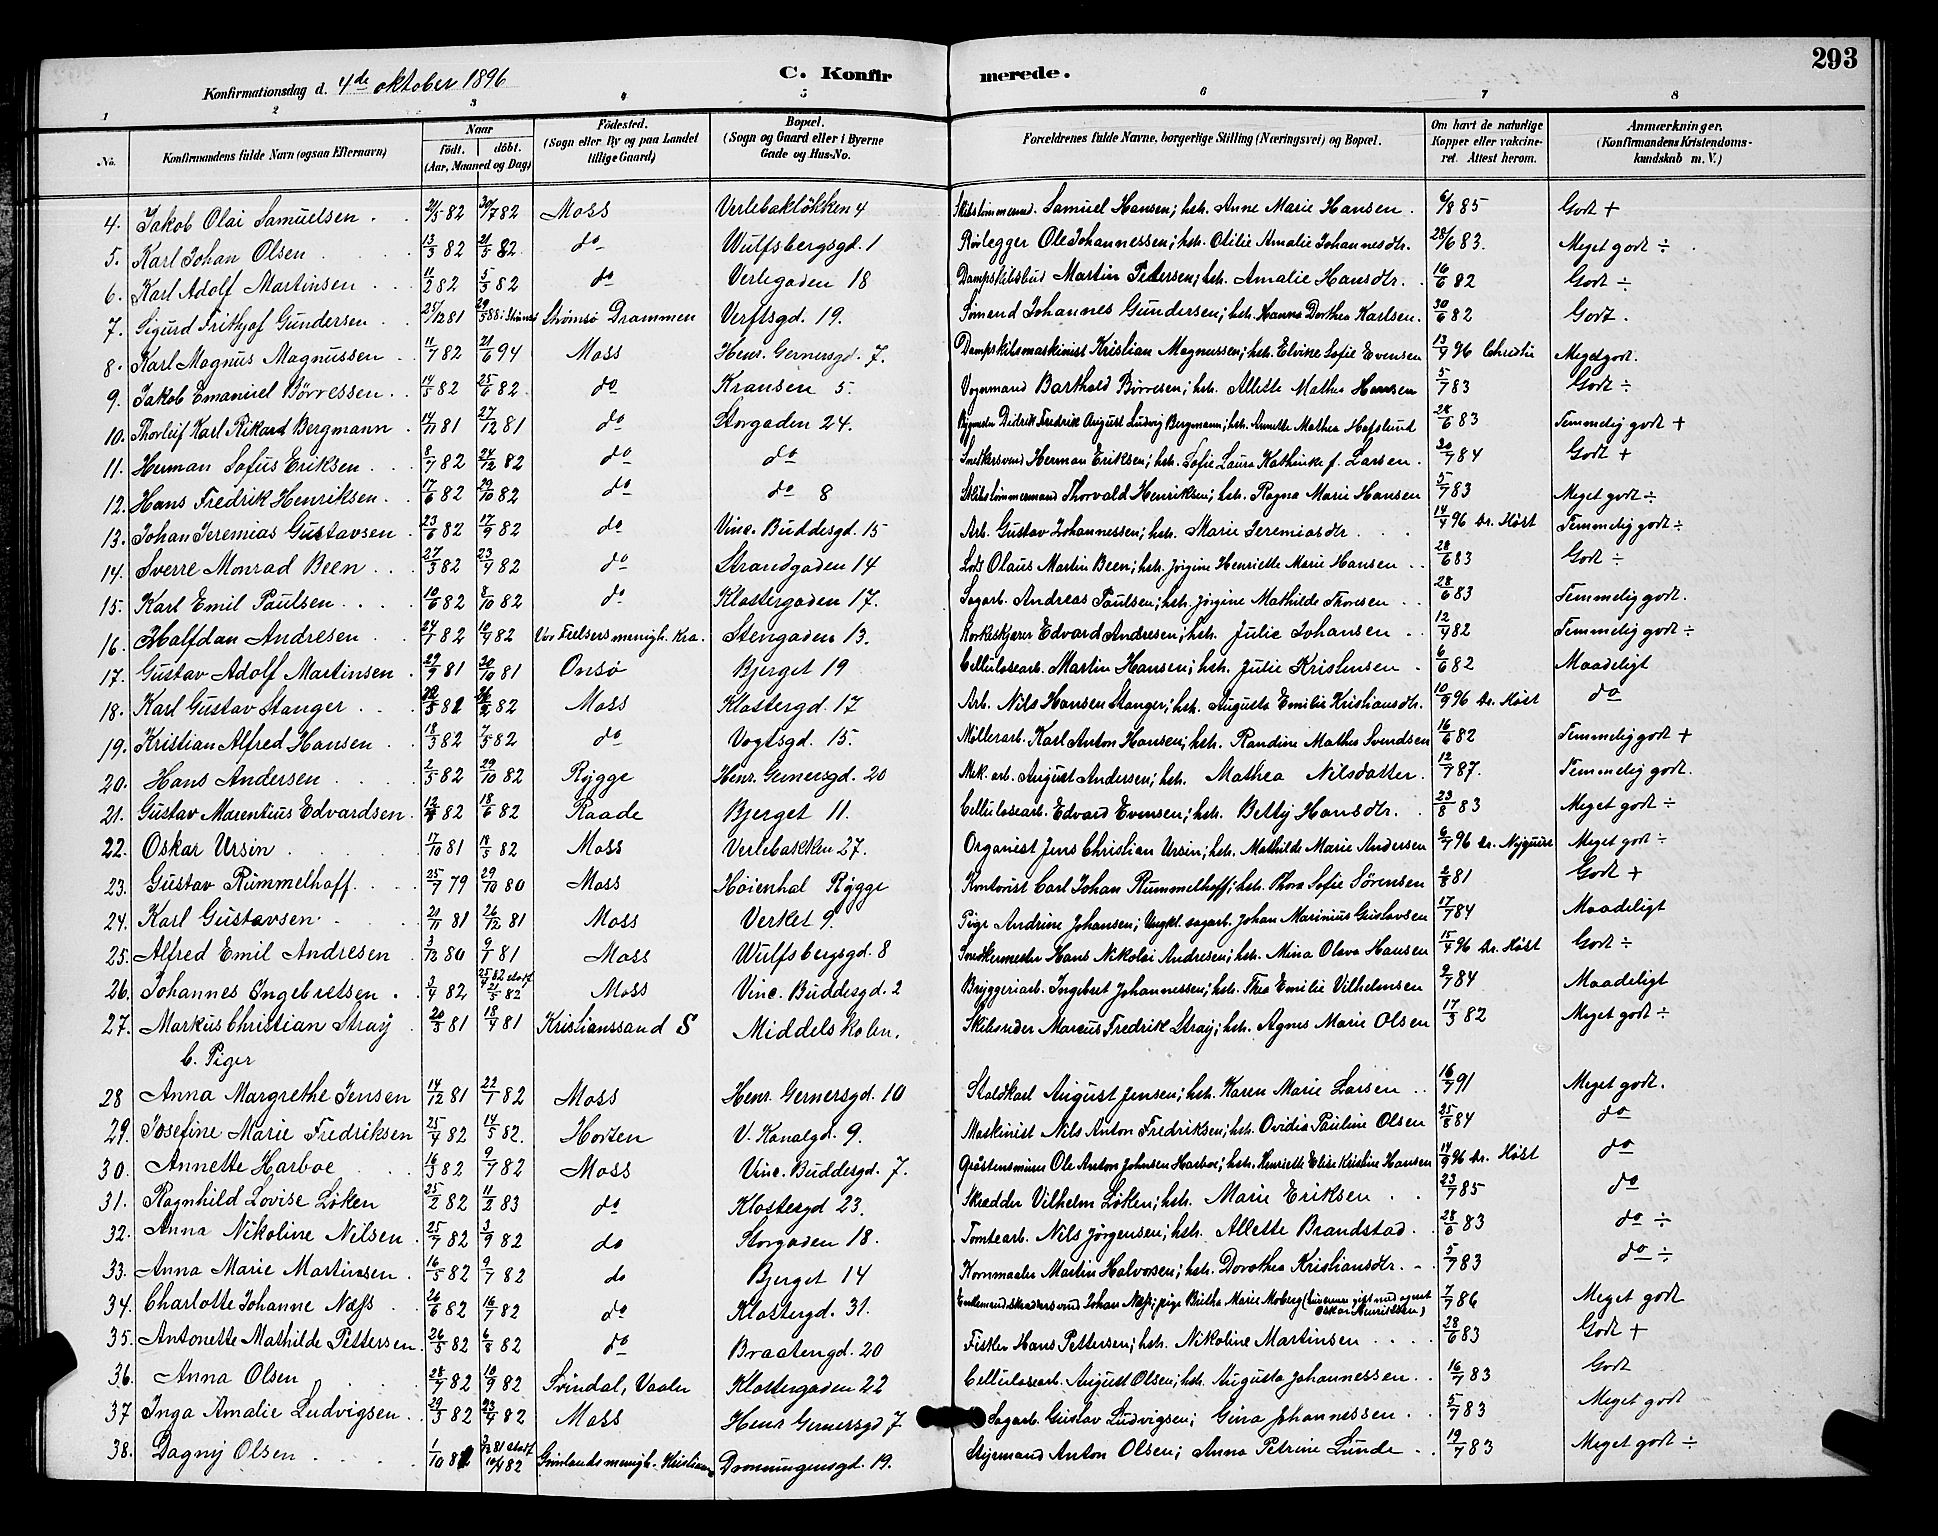 293
C. Konfirmerede.
Konfirmationsdag d. 4de oktober 1896
1 2 3 4 5 6 7 8
No. Konfirmandens fulde Navn (ogsaa Efternavn) Naar født. døbt. (Aar, Maaned og Dag) Fødested. (Sogn eller By og paa Landet tillige Gaard) Bopæl. (Sogn og Gaard eller i Byerne Gade og Hus-No. Forældrenes fulde Navne, borgerlige Stilling (Næringsvei) og Bopæl. Om havt de naturlige Kopper eller vakcineret. Attest herom. Anmærkninger. (Konfirmandens Kristendomskundskab m. V.)
4. Jakob Olai Samuelsen 21/5 82 30/7 82 Moss Verlebakløkken 4 Skibstømmermd. Samuel Hansen; hstr. Anne Marie Hansen 6/8 85 Godt +
5. Karl Johan Olsen 13/3 82 21/5 82 do Wulfsbergsgd. 1 Rørlegger Ole Johannessen; hstr. Otilie Amalie Johannesdtr. 28/6 83. Meget godt ÷
6. Karl Adolf Martinsen 11/2 82 5/5 82 do Verlegaden 18 Dampskibsbud Martin Petersen; hstr. Amalie Hansdtr. 16/6 82 Godt ÷
7. Sigurd Frithjof Gundersen 25/12 81 Strømsø Drammen Verftsgd. 19. Sømend Johannes Gundersen; hstr. Hanna Dorthea Karlsen. 30/6 82 Godt.
8. Karl Magnus Magnussen 11/7 82 21/6 94 Moss Henr. Gernersgd. 7. Dampskibsmaskinist Kristian Magnussen; hstr. Elvine Sofie Evensen 13/9 96 Christie Meget godt.
9. Jakob Emanuel Børressen 14/5 82 25/6 82 do Kransen 5. Vognmand Barthold Børresen; hstr. Allette Mathea Hansen 5/7 83 Godt ÷
10. Thorleif Karl Rikard Bergmann 14/11 81 27/12 81 do Storgaden 24. Didrik Fredrik August Ludvig Bergmann; hstr. Annette Mathea Hafslund 28/6 83 Temmelig godt +
11. Herman Sofus Eriksen 8/7 82 24/12 82 do do Snedkersvend Herman Eriksen; hstr. Sofie Laura Kathinke f. Larsen. 20/7 84 Godt +
12. Hans Fredrik Henriksen 17/6 82 29/10 82 do do 8 Skibstømmermand Thorvald Henriksen; hstr. Ragna Marie Hansen 5/7 83 Meget godt ÷
13. Johan Jeremias Gustavsen 23/6 82 17/9 82 do Vinc. Buddesgd. 15 Arb. Gustav Johannessen; hstr. Marie Jeremiasdtr 14/9 96 Dr. Høst Temmelig godt ÷
14. Sverre Monrad Been 27/3 82 23/4 82 do Strandgaden 14 Lods Olaus Martin Been; hstr. Jørgine Henriette Marie Hansen 28/6 83 Godt ÷
15. Karl Emil Paulsen 10/6 82 8/10 82 do Klostergaden 17. Sagarb. Andreas Paulsen; hstr. Jørgine Mathilde Thoresen 28/6 83 Temmelig godt.
16. Halfdan Andresen 24/1 82 10/4 82 Vor Frelsers menigh. Kra. Stengaden 13. Korkeskjærer Edvard Andresen; hstr. Julie Johansen 12/4 82 Temmelig godt ÷
17. Gustav Adolf Martinsen 29/9 81 30/10 81 Onsø Bjerget 19 Cellulosearb. Martin Hansen; hstr. Julie Kristensen 6/6 82 Maadeligt
18. Karl Gustav Stanger 82 82 Moss Klostergd. 17 Arb. Nils Hansen Stanger; hstr. Augusta Emilie Kristiansdtr. 10/9 96 Dr. Høst do
19. Kristian Alfred Hansen 18/3 82 7/5 82 do Vogtsgd. 15. Møllerarb. Karl Anton Hansen; hstr. Randine Mathea Svendsen 16/6 82 Temmelig godt +
20. Hans Andersen 2/5 82 29/10 82 Rygge Henr. Gernersgd. 20 Mek. arb. August Andersen; hstr. Mathea Nilsdatter. 12/7 87. Temmelig godt.
21. Gustav Marentius Edvardsen 82 18/6 82 Raade Bjerget 11. Cellulosearb. Edvard Evensen; hstr. Betty Hansdtr. 23/8 83 Meget godt ÷
22. Oskar Ursin 17/10 81 14/5 82 Moss Verlebakken 27. Organist Jens Christian Ursin; hstr. Mathilde Marie Andersen 6/7 96 Dr. Nyquist Meget godt ÷
23. Gustav Rummelhoff 25/7 79 29/10 80 Moss Høienhal Rygge Kontorist Carl Johan Rummelhoff; hstr. Thora Sofie Sørensen 2/8 81 Godt +
24. Karl Gustavsen 21/11 81 26/12 81 Moss Verket 9. Pige Andrine Johansen; Ungkl. sagarb. Johan Marinius Gustavsen 17/7 84 Maadeligt
25. Alfred Emil Andresen 3/12 80 9/1 81 Moss Wulfsbergsgd. 8 Snedkermester Hans Nikolai Andresen; hstr. Mina Olava Hansen 15/4 96 Dr. Høst Godt ÷
26. Johannes Ingebretsen 3/4 82 25/4 82 21/5 82 Moss Vinc. Buddesgd. 2 Bryggeriarb. Ingebret Johannessen; hstr. Thea Emilie Vilhelmsen 2/7 84 Maadeligt
27. Markus Christian Stray 20/3 81 18/4 81 Kristianssand S Middelskolen. Skibsreder Marcus Fredrik Stray; hstr. Agnes Marie Olsen 17/3 82 Meget godt ÷
b. Piger
28 Anna Margrethe Jensen 14/12 81 22/1 82 Moss Henr. Gernersgd. 10 Staldkarl August Jensen; hstr. Karen Marie Larsen 16/7 91 Meget godt.
29. Josefine Marie Fredriksen 25/4 82 14/5 82. Horten V. Kanalgd. 9. Maskinist Nils Anton Fredriksen; hstr. Ovidia Pauline Olsen 25/8 84 do
30. Annette Harboe 16/3 82 9/7 82 Moss Vinc. Buddesgd. 7. Gråstensminer Ole Anton Johnsen Harboe; hstr. Henriette Elise Kristine Hansen 14/9 96 Dr. Høst do
31. Ragnhild Lovise Løken 25/2 82 11/2 83 do Klostergd 23. Skrædder Vilhelm Løken; hstr. Marie Eriksen 23/7 85 do
32. Anna Nikoline Nilsen 25/7 82 3/9 82 do Storgaden 18. Tomtearb. Nils Jørgensen; hstr. Allette Brandstad. 28/6 83 do ÷
33. Anna Marie Martinsen 16/5 82 9/7 82 do Bjerget 14 Kornmaaler Martin Halvorsen; hstr. Dorothea Kristiansdtr. 5/7 83 do ÷
34. Charlotte Johanne Næss 26/6 82 16/7 82 do Klostergd. 31. Johan Næss; pige Britha Marie Moberg (hun nu gift med agent Oskar Henriksen) 7/7 86 Meget godt
35. Antonette Mathilde Pettersen 26/5 82 6/8 82 do Braatengd. 20 Fisker Hans Pettersen; hstr. Nikoline Martinsen 28/6 83 Godt +
36. Anna Olsen 28/7 82 10/9 82 Svindal, Vaaler Klostergaden 22 Cellulosearb. August Olsen; hstr. Augusta Johannessen 16/7 83 Godt
37 Inga Amalie Ludvigsen 29/3 82 23/4 82 Moss Henr Gernersgd 7. Sagarb. Gustav Ludvigsen; Gina Johannessen 5/7 83 Meget godt
38. Dagny Olsen 1/10 81 3/12 81 10/4 82 Grønlands menigh. Kristiania Dronningensgd. 19. Styrmand Anton Olsen; Anna Petrine Lunde 19/7 83 Meget godt ÷